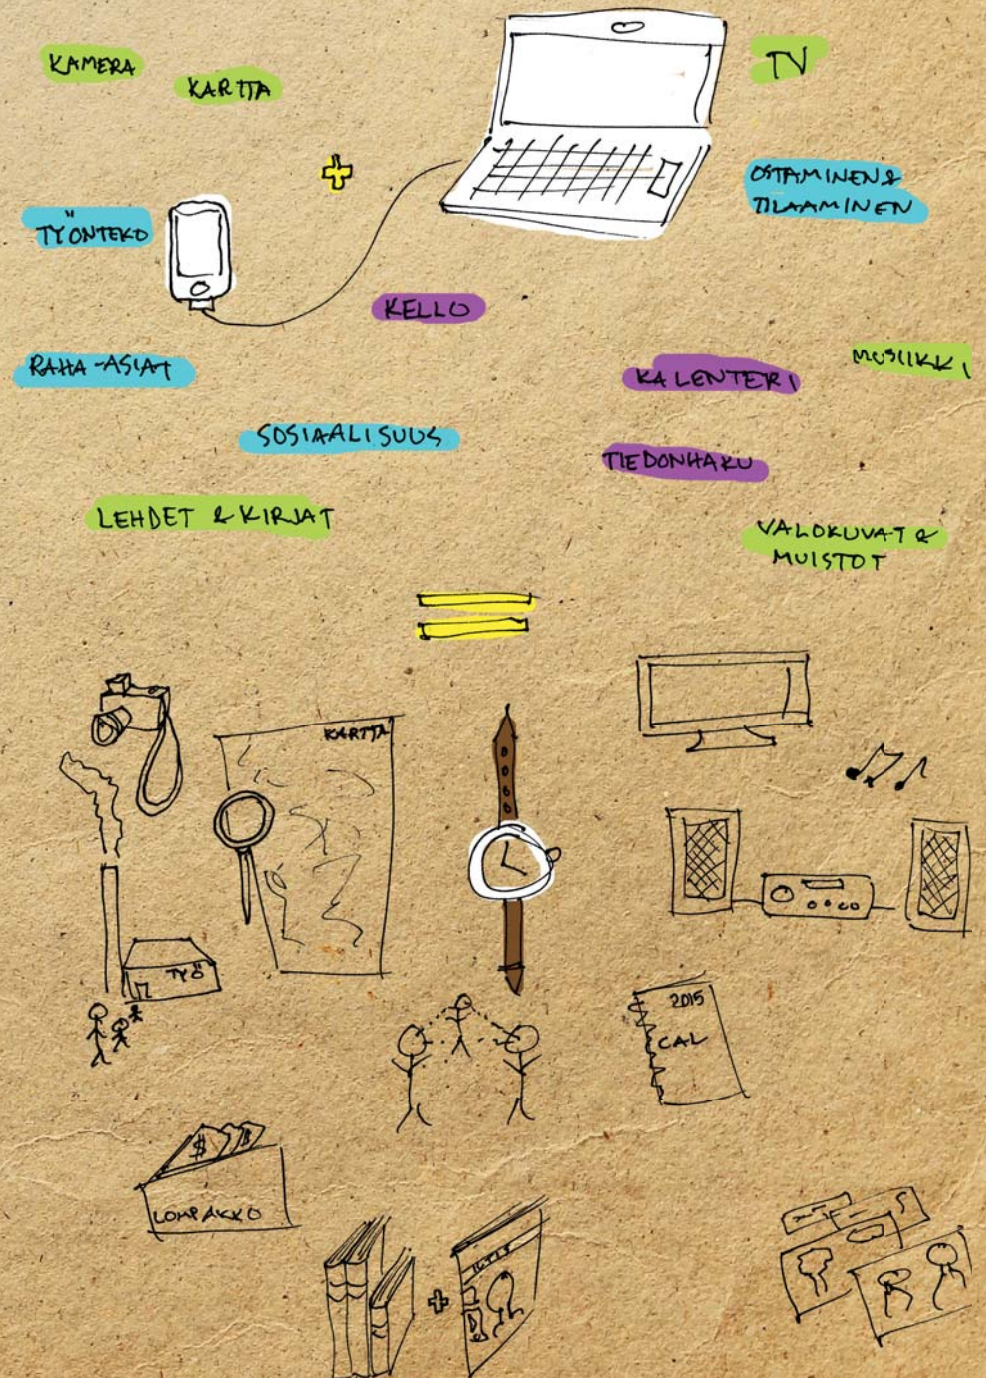 KAMERA
KARTTA
TV
OSTAMINEN &
TILAAMINEN
TYÖNTEKO
KELLO
RAHA-ASIAT
KALENTERI
MUSIIKKI
SOSIAALISUUS
TIEDONHAKU
LEHDET & KIRJAT
VALOKUVAT &
MUISTOT
KARTTA
TYÖ
2015
CAL
$ $
LOMPAKKO